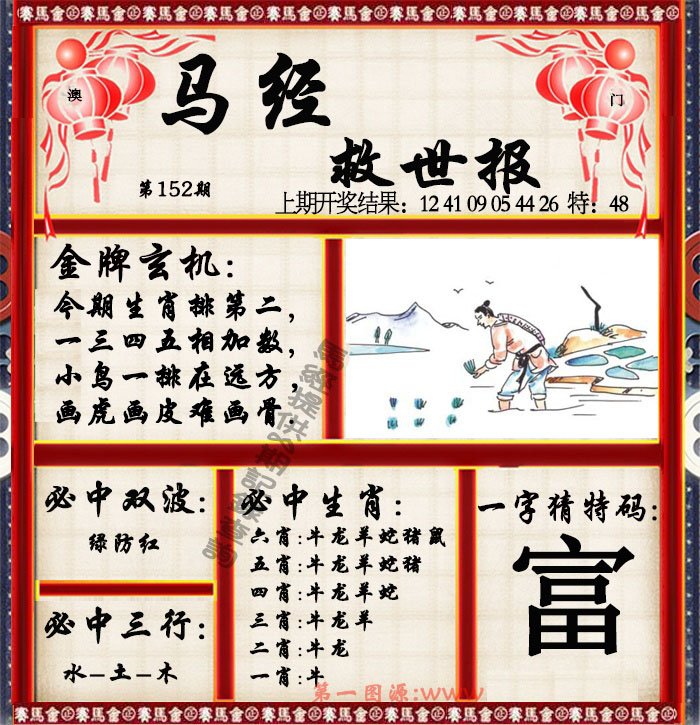 賽馬會㊣賽馬會㊣賽馬會㊣賽馬會㊣賽馬會㊣賽馬會㊣賽馬會㊣賽馬會㊣賽馬會
澳
门
马经
救世报
第152期
上期开奖结果：12 41 09 05 44 26 特：48
金牌玄机：
今期生肖排第二，
一三四五相加数，
小鸟一排在远方，
画虎画皮难画骨.
必中双波：
绿防红
必中三行：
水-土-木
必中生肖：
六肖:牛龙羊蛇猪鼠
五肖:牛龙羊蛇猪
四肖:牛龙羊蛇
三肖:牛龙羊
二肖:牛龙
一肖:牛
一字猜特码：
富
第一图源:www